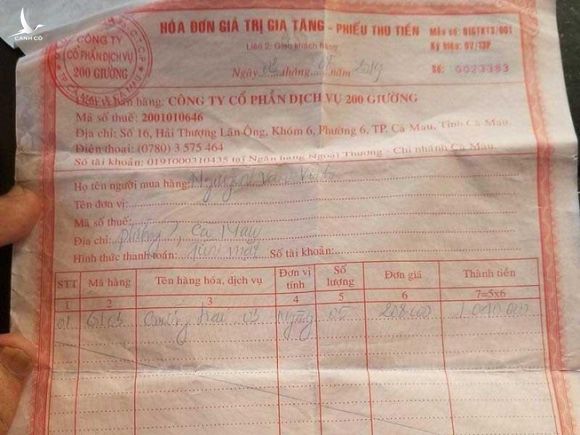 CANH CÔ
CÔNG TY
CỔ PHẦN DỊCH VỤ
200 GIƯỜNG
HÓA ĐƠN GIÁ TRỊ GIA TĂNG - PHIẾU THU TIỀN
Liên 2: Giao khách hàng
Ngày tháng năm 2019
Mẫu số: 01GTKT3/001
Ký hiệu: DV/13P
Số: 0023383
Đơn vị bán hàng: CÔNG TY CỔ PHẦN DỊCH VỤ 200 GIƯỜNG
Mã số thuế: 2001010646
Địa chỉ: Số 16, Hải Thượng Lãn Ông, Khóm 6, Phường 6, TP. Cà Mau, Tỉnh Cà Mau
Điện thoại: (0780) 3 575 464
Số tài khoản: 0191000310435 tại Ngân hàng Ngoại Thương - Chi nhánh Cà Mau
Họ tên người mua hàng: Nguyễn Văn
Tên đơn vị:
Mã số thuế:
Địa chỉ: phường 7, Cà Mau
Hình thức thanh toán: tiền mặt Số tài khoản:
STT Mã hàng Tên hàng hóa, dịch vụ Đơn vị tính Số lượng Đơn giá Thành tiền
1 2 3 4 5 6 7=5x6
01 Ngày 05 208.000 1.040.000